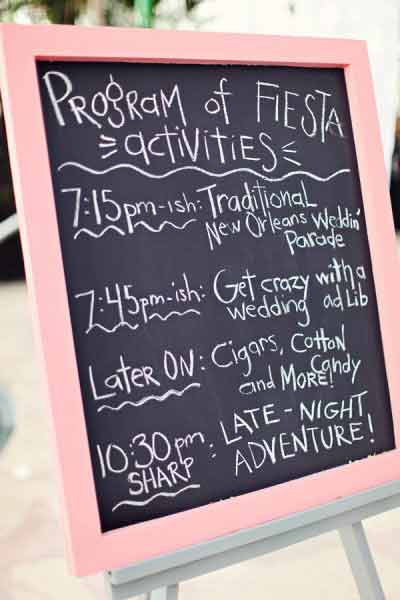 Program of FIESTA
activities
7:15pm-ish: Traditional
New Orleans Weddin'
Parade
7:45pm-ish: Get crazy with a
wedding ad Lib
Later ON: Cigars, Cotton
Candy
and More!
10:30pm : LATE-NIGHT
SHARP ADVENTURE!